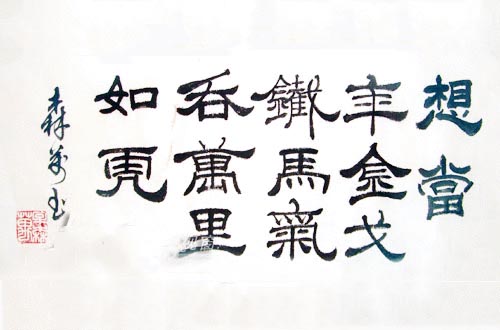 想當
年金戈
鐵馬氣
吞萬里
如虎
森